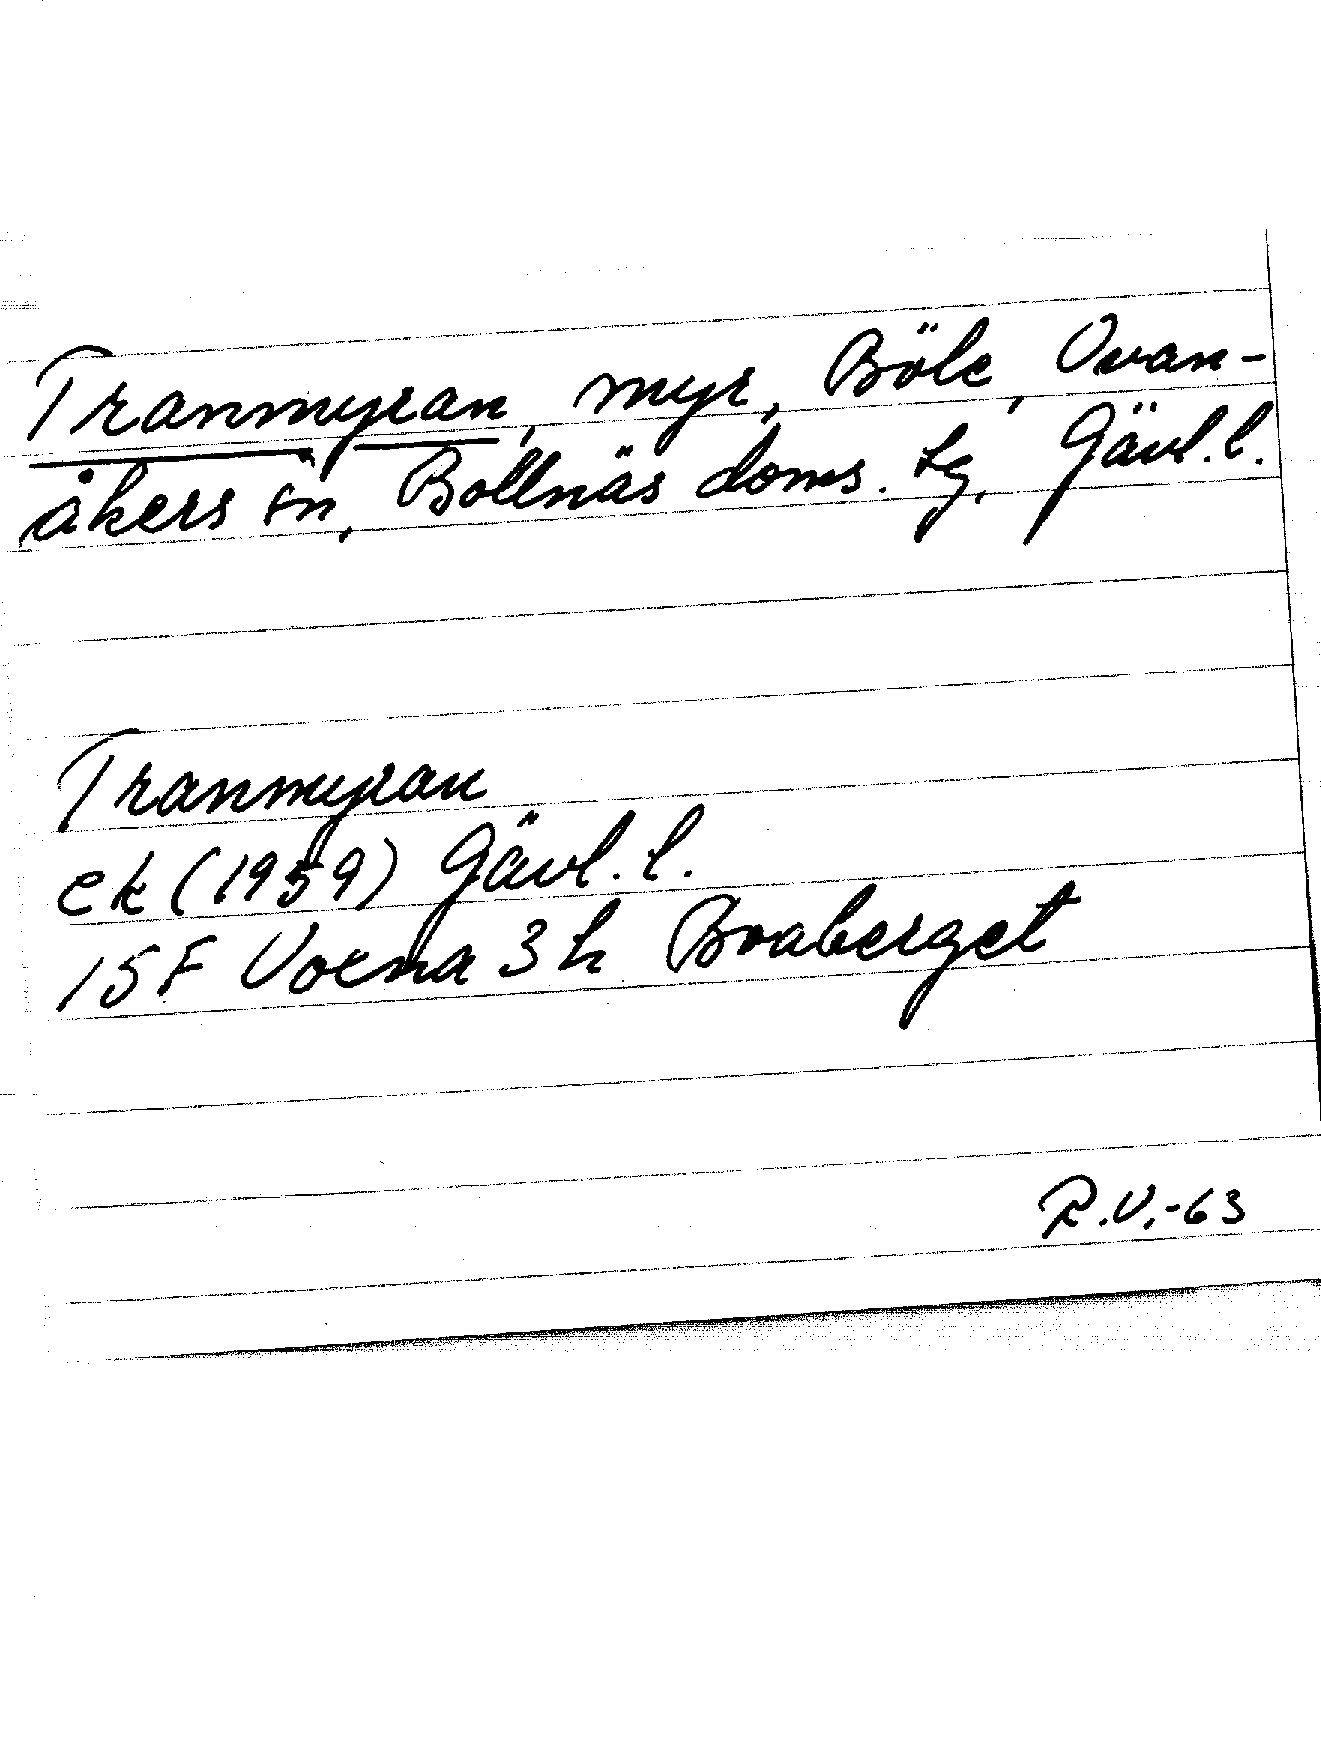 Tranmyran, myr, Böle, Ovan-
åkers sn, Bollnäs doms. tg, Gävl. l.
Tranmyran
ek (1959) Gävl. l.
15F Voxna 3h Boaberget
R.V.-63